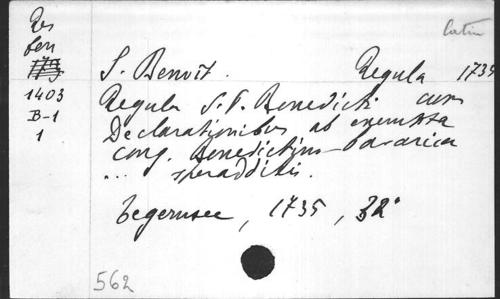 Latin
Res
ben
1403
B-1
1
S. Benoît. Regula 1735
Regula S. P. Benedicti cum
Declarationibus ab exemptta
cong. Benedictino-bavarica
... superadditis.
Tegernsee, 1735, 32°
562